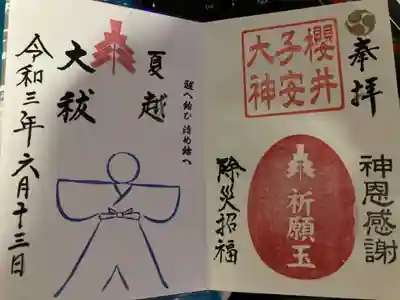 奉拝
櫻井
子安
大神
神恩感謝
祈願玉
除災招福
夏越
大祓
令和三年六月十三日